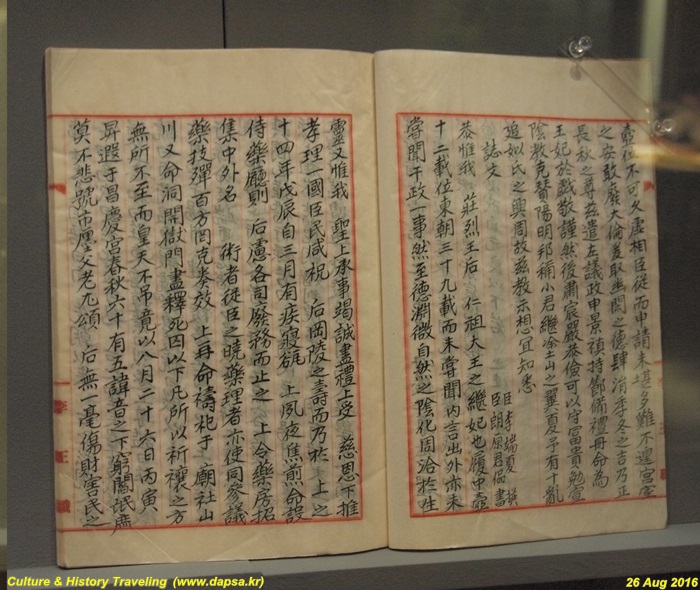 壼位不可久虛相臣從而申請未堪多難不遑宮室
之安敢廢大倫爰取幽閑之德肆消季冬之吉乃正
長秋之尊玆遣左議政申景禛持節備禮冊命為
王妃於戲敬謹然後肅宸嚴恭儉可以守富貴勉宣
陰教克贊陽明邦稱小君繼塗山之翼夏予有十亂
追姒氏之興周故玆教示想宜知悉
誌文
臣李端夏撰
臣朗原君偘書
恭惟我 莊烈王后 仁祖大王之繼妃也履中壼
十二載位東朝三十九載而未嘗聞內言出外亦未
嘗聞干政一事然至德淵微自然之陰化周洽於生
靈又惟我 聖上承事竭誠盡禮上受 慈恩下推
孝理一國臣民咸祝 后岡陵之壽而乃於 上之
十四年戊辰自三月有疾寢劇 上夙夜焦煎命設
侍藥廳則 后慮各司廢務而止之 上令藥房招
集中外名 術者從臣之曉藥理者亦使同參議
藥技殫百方罔克奏效 上再命禱祀于 廟社山
川又命洞開獄門盡釋死囚以下凡所以祈禳之方
無所不至而皇天不弔竟以八月二十六日丙寅
昇遐于昌慶宮春秋六十有五諱音之下窮閭氓庶
莫不悲號市廛父老尤頌 后無一毫傷財害民之
Culture & History Traveling (www.dapsa.kr)
26 Aug 2016